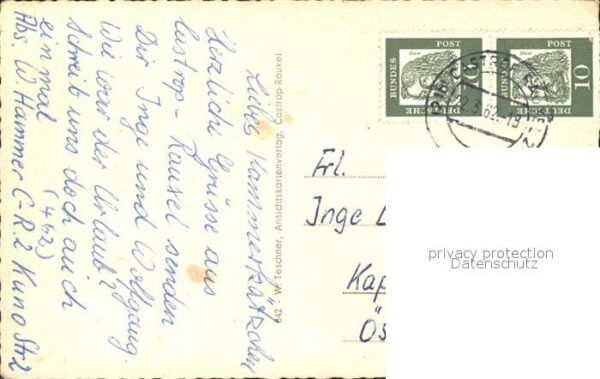 Liebes Kammerkätzchen
Herzliche Grüsse aus
Castrop-Rauxel senden
Dir Inge und Wolfgang.
Wie war der Urlaub?
Schreib uns doch auch
einmal (462)
Abs. W. Hammer C-R. 2 Kuno Str 2
642 - W. Teschner, Ansichtskartenverlag, Castrop-Rauxel
DEUTSCHE BUNDESPOST 10
DEUTSCHE BUNDESPOST 10
CASTROP
62-18
Frl.
Inge
Kap
Ös
privacy protection
Datenschutz